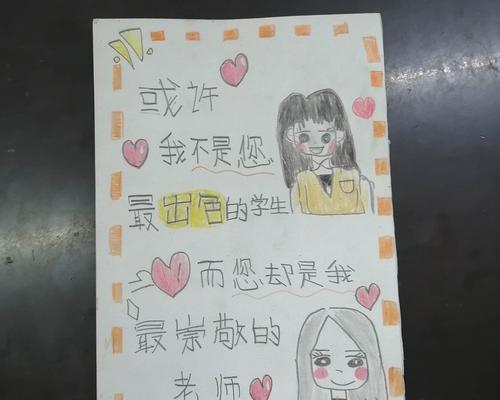 或许
我不是您
最出色的学生
而您却是我
最崇敬的
老师